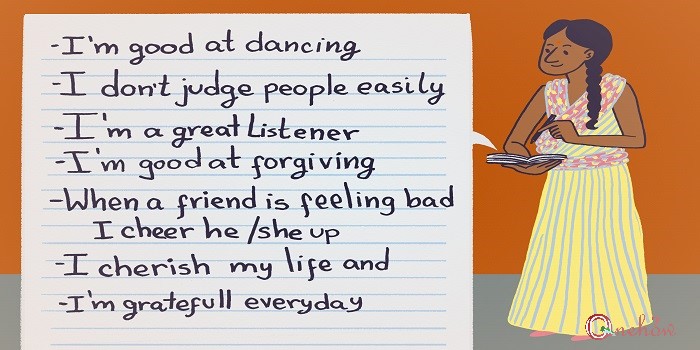 -I'm good at dancing
-I don't judge people easily
-I'm a great Listener
-I'm good at forgiving
-When a friend is feeling bad
I cheer he/she up
-I cherish my life and
-I'm gratefull everyday
Onehow